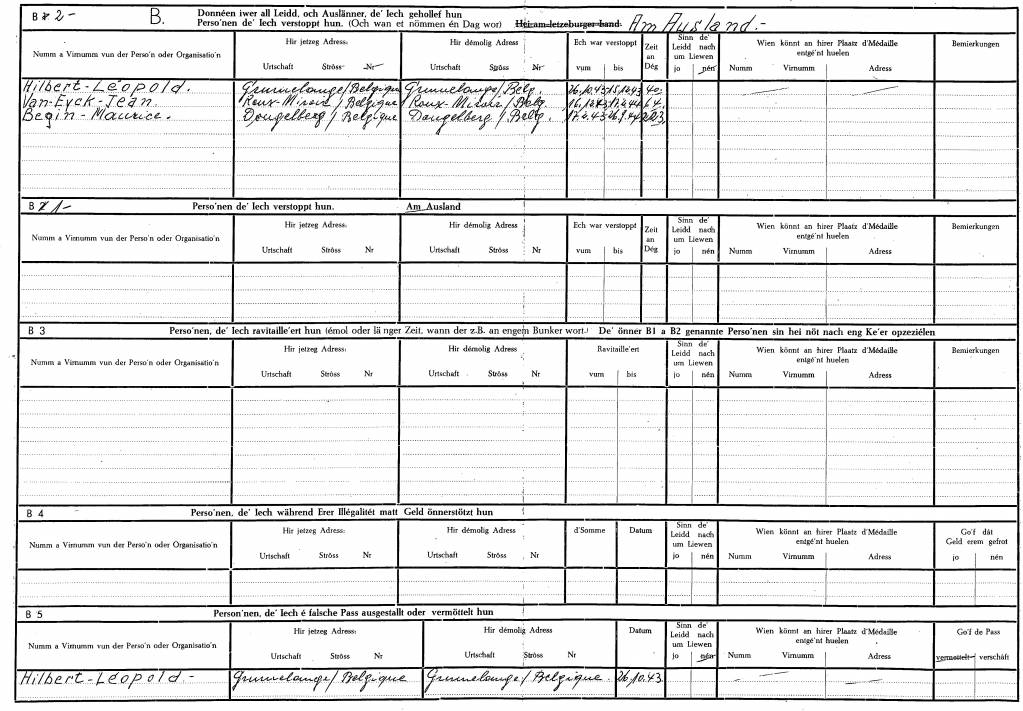 B 2- B. Donnéen iwer all Leidd, och Auslänner, de' Iech gehollef hun
Perso'nen de' Iech verstoppt hun. (Och wan et nömmen én Dag wor) Hei am letzeburger land. Am Ausland.-
Numm a Virnumm vun der Perso'n oder Organisatio'n
Hir jetzeg Adress:
Urtschaft Ströss Nr
Hir démolig Adress
Urtschaft Ströss Nr
Ech war verstoppt
vum bis
Zeit an Dég
Sinn de' Leidd nach um Liewen
jo nén
Wien könnt an hirer Plaatz d'Médaille entgé'nt huelen
Numm Virnumm Adress
Bemierkungen
Hilbert-Léopold. Grumelange/Belgique Grumelange/Belg. 26.10.43
Van-Eyck-Jean. Roux-Miroir/Belgique Roux-Miroir/Belg.
Begin-Maurice. Dongelberg/Belgique Dongelberg/Belg.
B 1- Perso'nen de' Iech verstoppt hun. Am Ausland
Numm a Virnumm vun der Perso'n oder Organisatio'n
Hir jetzeg Adress:
Urtschaft Ströss Nr
Hir démolig Adress
Urtschaft Ströss Nr
Ech war verstoppt
vum bis
Zeit an Dég
Sinn de' Leidd nach um Liewen
jo nén
Wien könnt an hirer Plaatz d'Médaille entgé'nt huelen
Numm Virnumm Adress
Bemierkungen
B 3 Perso'nen, de' Iech ravitaille'ert hun (émol oder länger Zeit, wann der z.B. an engem Bunker wort.) De' önner B1 a B2 genannte Perso'nen sin hei nöt nach eng Ke'er opzeziélen
Numm a Virnumm vun der Perso'n oder Organisatio'n
Hir jetzeg Adress:
Urtschaft Ströss Nr
Hir démolig Adress
Urtschaft Ströss Nr
Ravitaille'ert
vum bis
Sinn de' Leidd nach um Liewen
jo nén
Wien könnt an hirer Plaatz d'Médaille entgé'nt huelen
Numm Virnumm Adress
Bemierkungen
B 4 Perso'nen, de' Iech während Erer Illégalitét matt Geld önnerstötzt hun
Numm a Virnumm vun der Perso'n oder Organisatio'n
Hir jetzeg Adress:
Urtschaft Ströss Nr
Hir démolig Adress
Urtschaft Ströss Nr
d'Somme
Datum
Sinn de' Leidd nach um Liewen
jo nén
Wien könnt an hirer Plaatz d'Médaille entgé'nt huelen
Numm Virnumm Adress
Go'f dât Geld erem gefrot
jo nén
B 5 Person'nen, de' Iech é falsche Pass ausgestallt oder vermöttelt hun
Numm a Virnumm vun der Perso'n oder Organisatio'n
Hir jetzeg Adress:
Urtschaft Ströss Nr
Hir démolig Adress
Urtschaft Ströss Nr
Datum
Sinn de' Leidd nach um Liewen
jo nén
Wien könnt an hirer Plaatz d'Médaille entgé'nt huelen
Numm Virnumm Adress
Go'f de Pass
vermottelt verschâft
Hilbert-Léopold.- Grumelange/Belgique Grumelange/Belgique. 26.10.43